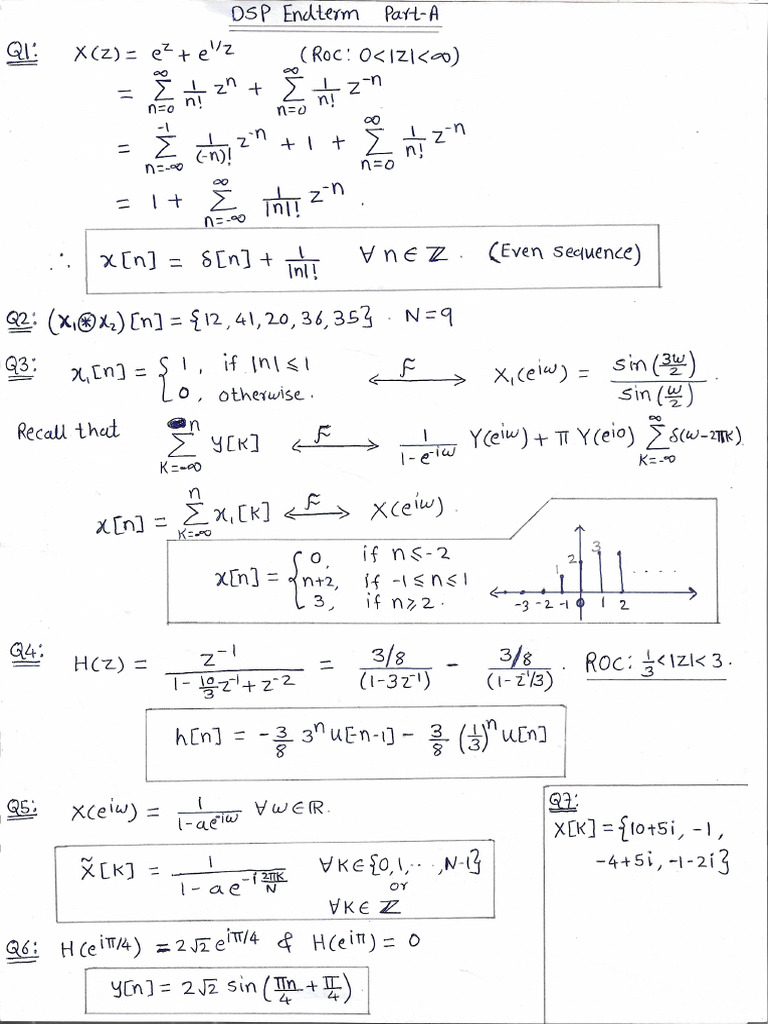 DSP Endterm Part-A
Q1: X(z) = e^z + e^{1/z} (ROC: 0<|z|<∞)
= ∑_{n=0}^{∞} 1/n! z^n + ∑_{n=0}^{∞} 1/n! z^{-n}
= ∑_{n=-∞}^{-1} 1/(-n)! z^{-n} + 1 + ∑_{n=0}^{∞} 1/n! z^{-n}
= 1 + ∑_{n=-∞}^{∞} 1/|n|! z^{-n}.
∴ x[n] = δ[n] + 1/|n|! ∀ n ∈ ℤ. (Even sequence)
Q2: (x₁ ⊛ x₂)[n] = {12, 41, 20, 36, 35}. N=9
Q3: x₁[n] = { 1, if |n| ≤ 1
0, otherwise. ⟷^F X₁(e^{iω}) = sin(3ω/2) / sin(ω/2).
Recall that ∑_{K=-∞}^{n} y[K] ⟷^F 1/(1-e^{-iω}) Y(e^{iω}) + π Y(e^{i0}) ∑_{K=-∞}^{∞} δ(ω-2πK)
x[n] = ∑_{K=-∞}^{n} x₁[K] ⟷^F X(e^{iω}).
x[n] = { 0, if n ≤ -2
n+2, if -1 ≤ n ≤ 1
3, if n ≥ 2.
1 2 3 .....
-3 -2 -1 0 1 2
Q4: H(z) = z^{-1} / (1 - 10/3 z^{-1} + z^{-2}) = 3/8 / (1-3z^{-1}) - 3/8 / (1-z^{-1}/3). ROC: 1/3<|z|<3.
h[n] = -3/8 3^n u[-n-1] - 3/8 (1/3)^n u[n]
Q5: X(e^{iω}) = 1/(1-ae^{-iω}) ∀ω∈ℝ.
X̃[K] = 1/(1-ae^{-i2πK/N}) ∀K∈{0,1,⋯,N-1}
or
∀K∈ℤ
Q6: H(e^{iπ/4}) = 2√2 e^{iπ/4} & H(e^{iπ}) = 0
y[n] = 2√2 sin(πn/4 + π/4)
Q7:
X[K] = {10+5i, -1,
-4+5i, -1-2i}